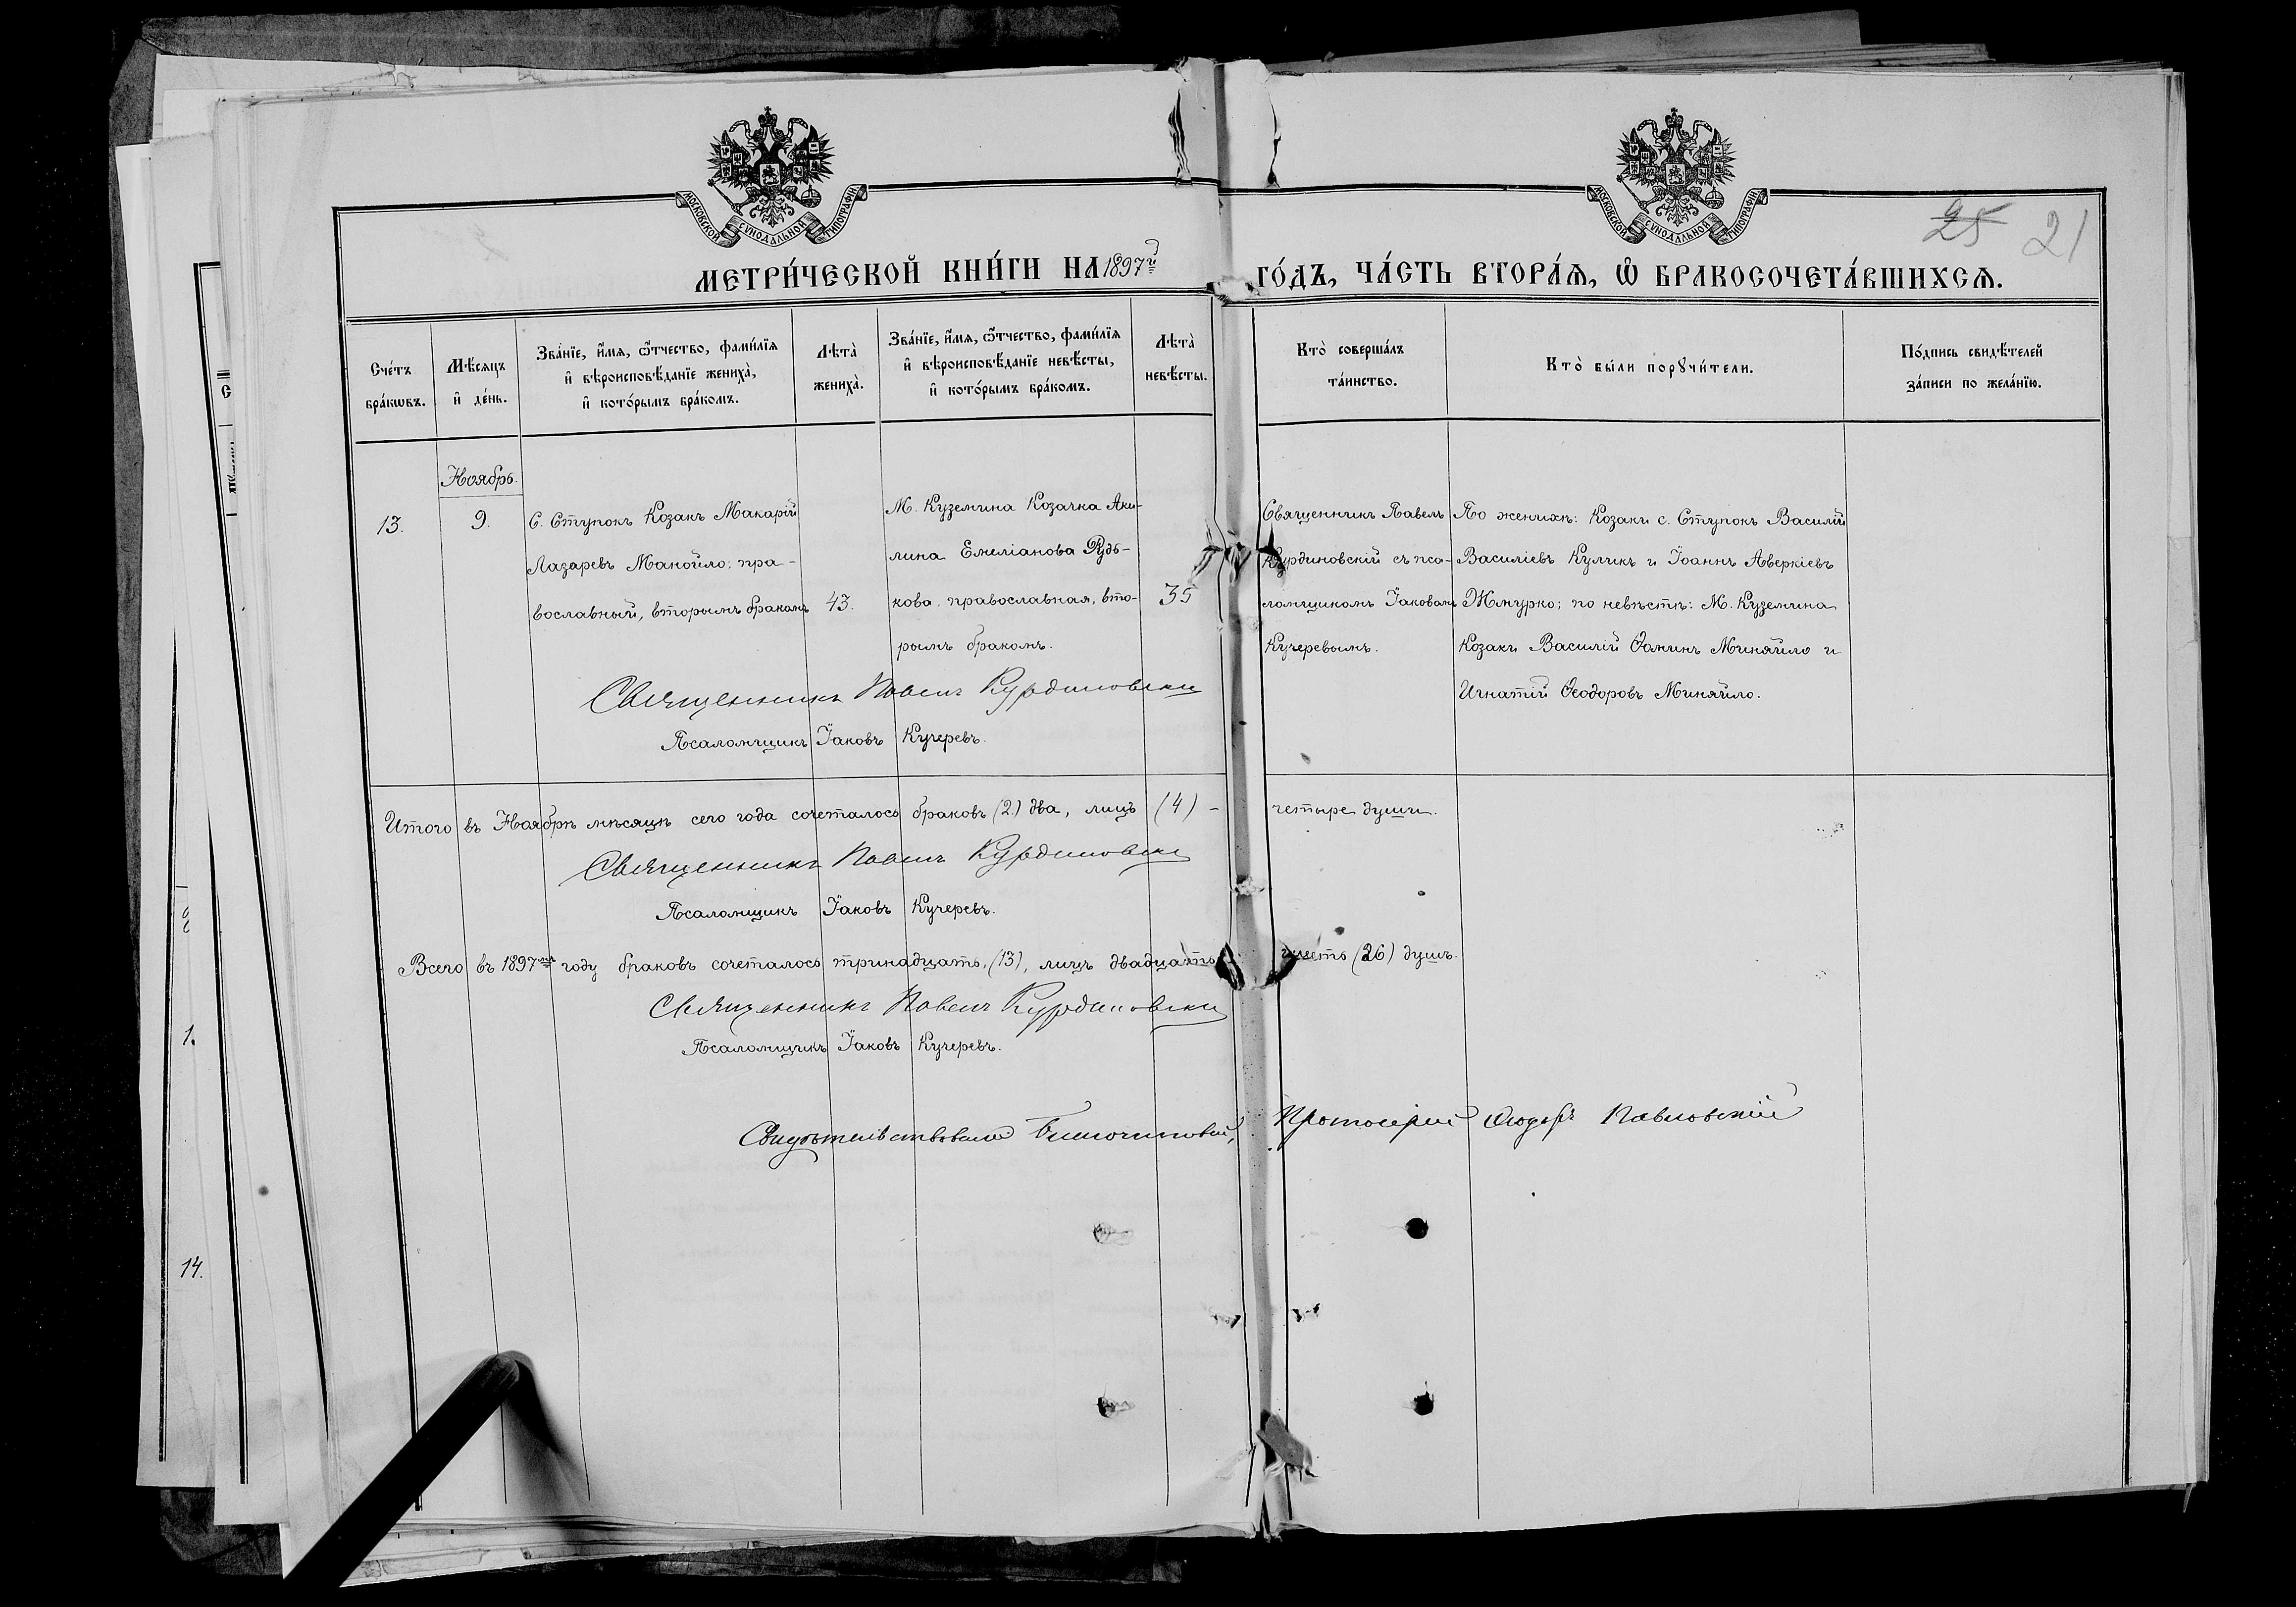 МОСКОВСКОЙ СѴНОДАЛЬНОЙ ТИПОГРАФІИ
МОСКОВСКОЙ СѴНОДАЛЬНОЙ ТИПОГРАФІИ
25 21
МЕТРИ́ЧЕСКОЙ КНИ́ГИ НА 1897й ГО́ДЪ, ЧА́СТЬ ВТОРА́Ѧ, Ѽ БРАКОСОЧЕТА́ВШИХСѦ.
Сче́тъ бра́кѡвъ.
Мѣ́сяцъ и҆ де́нь.
Зва́нїе, и҆́мѧ, ѻ҆́тчество, фамѝлїѧ
и҆ вѣроисповѣ́данїе жениха̀,
и҆ кото́рымъ бра́комъ.
Лѣта̀ жениха̀.
Зва́нїе, и҆́мѧ, ѻ҆́тчество, фамѝлїѧ
и҆ вѣроисповѣ́данїе невѣ́сты,
и҆ кото́рымъ бра́комъ.
Лѣта̀ невѣ́сты.
Кто̀ соверша́лъ
та́инство.
Кто̀ бы́ли порꙋчи́тели.
По́дпись свидѣ́телей
за́писи по жела́нїю.
13.
Ноябрь.
9.
С. Ступокъ Козакъ Макарій
Лазаревъ Манойло; пра-
вославный, вторымъ бракомъ
43.
М. Куземина Козачка Аки-
лина Емеліанова Рудь-
кова православная, вто-
рымъ бракомъ.
35
Священникъ Павелъ
Курдиновскій съ пса-
ломщикомъ Іаковомъ
Кучеревымъ.
По женихѣ: Козаки с. Ступокъ Василій
Василіевъ Куликъ и Іоаннъ Аверкіевъ
Жмурко; по невѣстѣ: М. Куземина
Козаки Василій Ѳоминъ Миняйло и
Игнатій Ѳеодоровъ Миняйло.
Священникъ Павелъ Курдиновскій
Псаломщикъ Іаковъ Кучеревъ.
Итого въ Ноябрѣ мѣсяцѣ сего года сочеталось браковъ (2) два, лицъ (4) - четыре души.
Священникъ Павелъ Курдиновскій
Псаломщикъ Іаковъ Кучеревъ.
Всего въ 1897мъ году браковъ сочеталось тринадцать, (13), лицъ двадцать шесть (26) душъ.
Священникъ Павелъ Курдиновскій
Псаломщикъ Іаковъ Кучеревъ.
Свидѣтельствовалъ Благочинный, Протоіерей Ѳеодоръ Павловскій
1.
14.